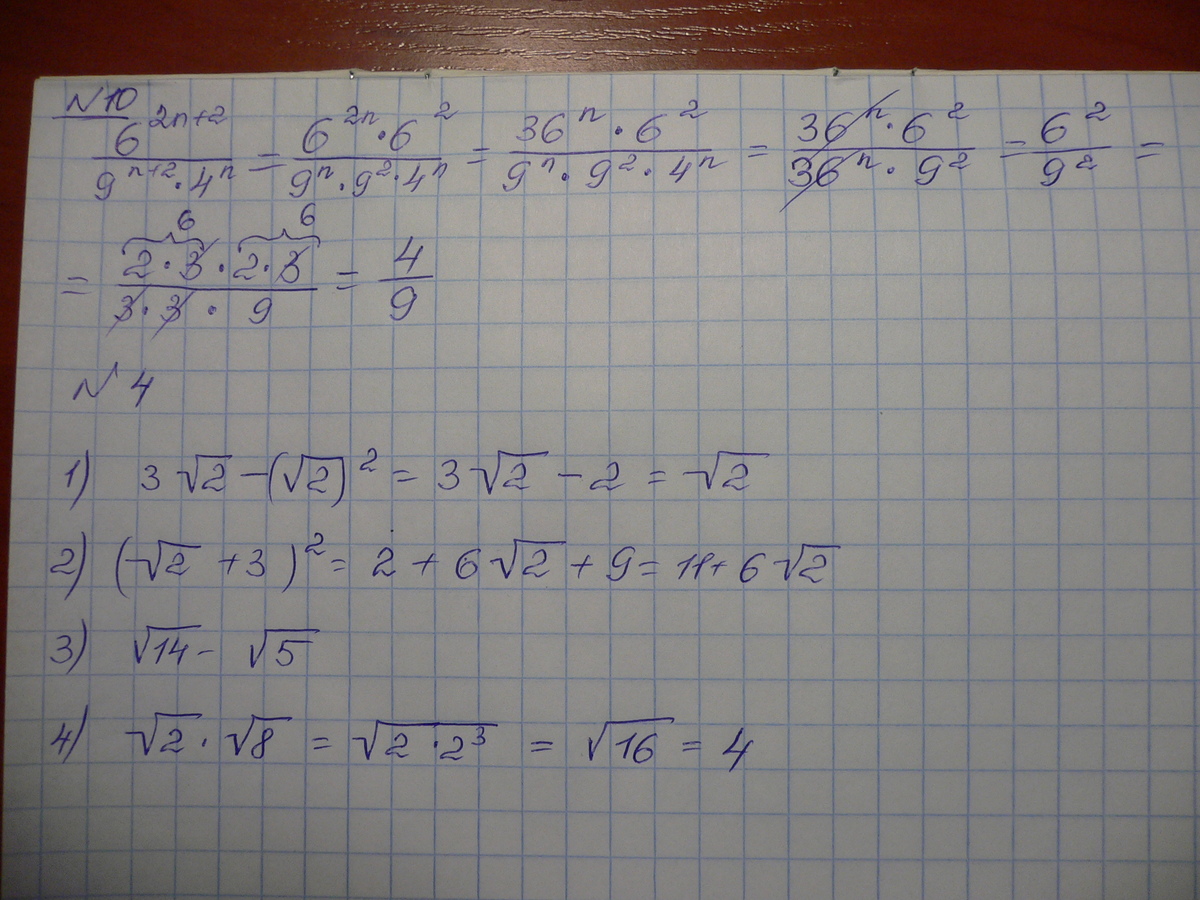 №10
6^(2n+2) / (9^(n+2) · 4^n) = (6^(2n) · 6^2) / (9^n · 9^2 · 4^n) = (36^n · 6^2) / (9^n · 9^2 · 4^n) = (36^n · 6^2) / (36^n · 9^2) = 6^2 / 9^2 =
6 6
= (2 · 3 · 2 · 3) / (3 · 3 · 9) = 4 / 9
№ 4
1) 3√2 − (√2)^2 = 3√2 − 2 = √2
2) (√2 + 3)^2 = 2 + 6√2 + 9 = 11 + 6√2
3) √14 − √5
4) √2 · √8 = √(2 · 2^3) = √16 = 4